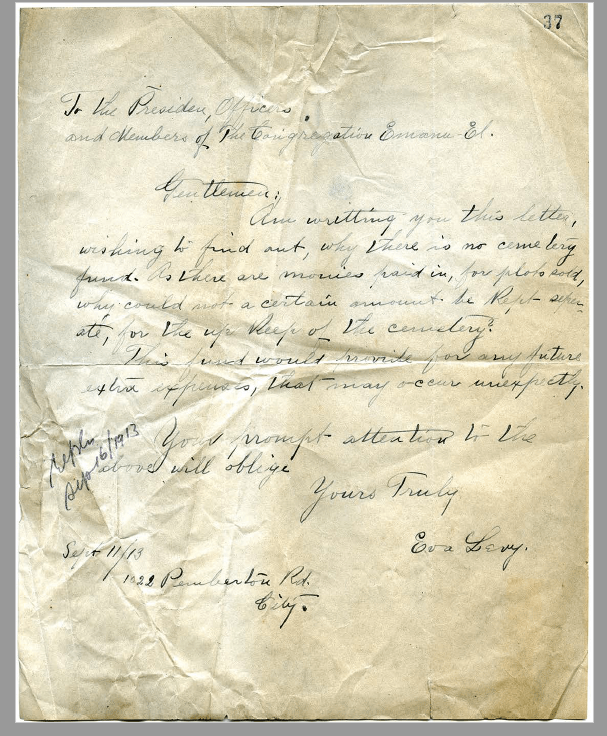 37
To the Presiden, Officers
and Members of The Congregation Emanu-El.
Gentlemen;
Am writting you this letter,
wishing to find out, why there is no cemetery
fund. As there are monies paid in, for plots sold,
why could not a certain amount be kept seper-
ate, for the up keep of the cemetery?
This fund would provide for any future
extra expenses, that may occur unexpectly.
Your prompt attention to the
above will oblige
Yours Truly
Eva Levy.
Sept 16/1913
Sept 11/13
1922 Pemberton Rd.
City.